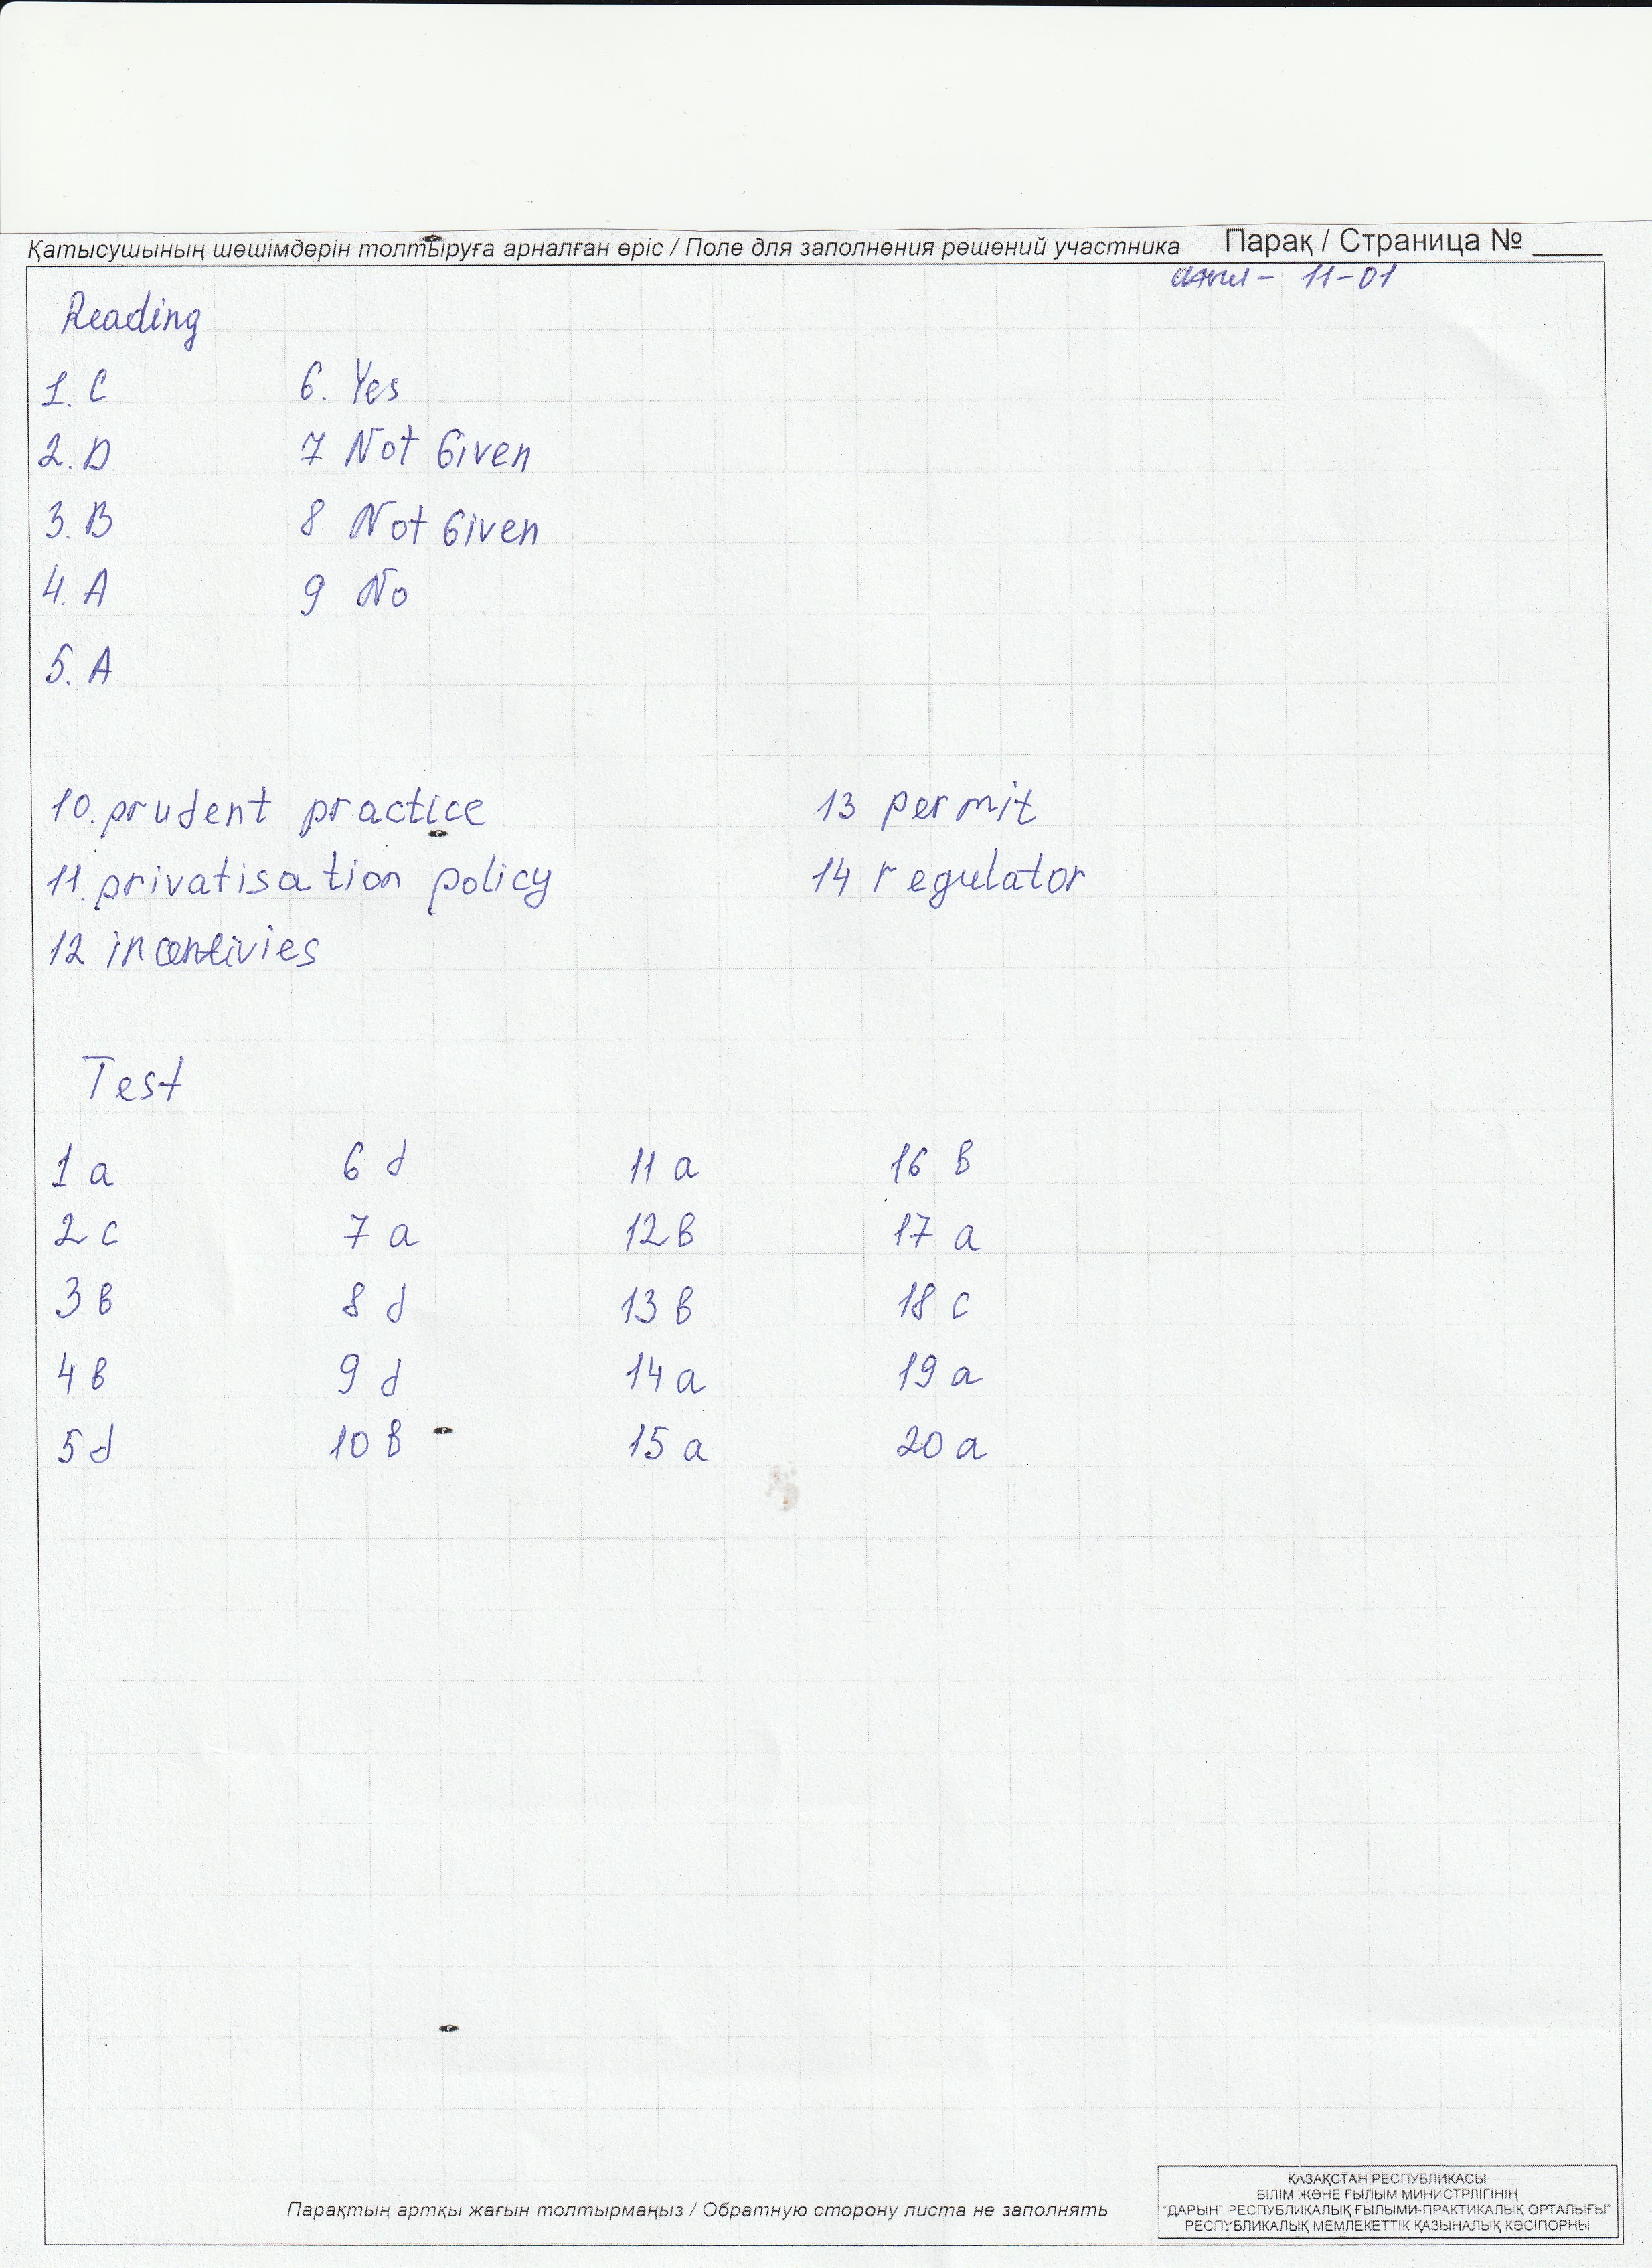 Қатысушының шешімдерін толтыруға арналған өріс / Поле для заполнения решений участника Парақ / Страница № ____
англ - 11-01
Reading
1. C 6. Yes
2. D 7 Not Given
3. B 8 Not Given
4. A 9 No
5. A
10. prudent practice 13 permit
11. privatisation policy 14 regulator
12 incentivies
Test
1 a 6 d 11 a 16 в
2 c 7 a 12 в 17 a
3 в 8 d 13 в 18 c
4 в 9 d 14 a 19 a
5 d 10 в 15 a 20 a
Парақтың артқы жағын толтырмаңыз / Обратную сторону листа не заполнять
ҚАЗАҚСТАН РЕСПУБЛИКАСЫ
БІЛІМ ЖӘНЕ ҒЫЛЫМ МИНИСТРЛІГІНІҢ
"ДАРЫН" РЕСПУБЛИКАЛЫҚ ҒЫЛЫМИ-ПРАКТИКАЛЫҚ ОРТАЛЫҒЫ"
РЕСПУБЛИКАЛЫҚ МЕМЛЕКЕТТІК ҚАЗЫНАЛЫҚ КӘСІПОРНЫ